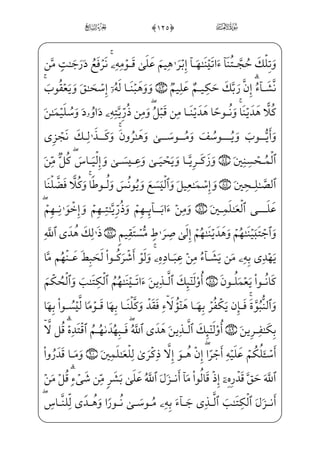 سورة الأنعام ﴿١٢٥﴾ الجزء السابع
وَتِلْكَ حُجَّتُنَآ ءَاتَيْنَٰهَآ إِبْرَٰهِيمَ عَلَىٰ قَوْمِهِۦ ۚ نَرْفَعُ دَرَجَٰتٍ مَّن
نَّشَآءُ ۗ إِنَّ رَبَّكَ حَكِيمٌ عَلِيمٌ ۝ وَوَهَبْنَا لَهُۥٓ إِسْحَٰقَ وَيَعْقُوبَ ۚ
كُلًّا هَدَيْنَا ۚ وَنُوحًا هَدَيْنَا مِن قَبْلُ ۖ وَمِن ذُرِّيَّتِهِۦ دَاوُۥدَ وَسُلَيْمَٰنَ
وَأَيُّوبَ وَيُوسُفَ وَمُوسَىٰ وَهَٰرُونَ ۚ وَكَذَٰلِكَ نَجْزِى
ٱلْمُحْسِنِينَ ۝ وَزَكَرِيَّا وَيَحْيَىٰ وَعِيسَىٰ وَإِلْيَاسَ ۖ كُلٌّ مِّنَ
ٱلصَّٰلِحِينَ ۝ وَإِسْمَٰعِيلَ وَٱلْيَسَعَ وَيُونُسَ وَلُوطًا ۚ وَكُلًّا فَضَّلْنَا
عَلَى ٱلْعَٰلَمِينَ ۝ وَمِنْ ءَابَآئِهِمْ وَذُرِّيَّٰتِهِمْ وَإِخْوَٰنِهِمْ ۖ
وَٱجْتَبَيْنَٰهُمْ وَهَدَيْنَٰهُمْ إِلَىٰ صِرَٰطٍ مُّسْتَقِيمٍ ۝ ذَٰلِكَ هُدَى ٱللَّهِ
يَهْدِى بِهِۦ مَن يَشَآءُ مِنْ عِبَادِهِۦ ۚ وَلَوْ أَشْرَكُوا۟ لَحَبِطَ عَنْهُم مَّا
كَانُوا۟ يَعْمَلُونَ ۝ أُو۟لَٰٓئِكَ ٱلَّذِينَ ءَاتَيْنَٰهُمُ ٱلْكِتَٰبَ وَٱلْحُكْمَ
وَٱلنُّبُوَّةَ ۚ فَإِن يَكْفُرْ بِهَا هَٰٓؤُلَآءِ فَقَدْ وَكَّلْنَا بِهَا قَوْمًا لَّيْسُوا۟ بِهَا
بِكَٰفِرِينَ ۝ أُو۟لَٰٓئِكَ ٱلَّذِينَ هَدَى ٱللَّهُ ۖ فَبِهُدَىٰهُمُ ٱقْتَدِهْ ۗ قُل لَّآ
أَسْـَٔلُكُمْ عَلَيْهِ أَجْرًا ۖ إِنْ هُوَ إِلَّا ذِكْرَىٰ لِلْعَٰلَمِينَ ۝ وَمَا قَدَرُوا۟
ٱللَّهَ حَقَّ قَدْرِهِۦٓ إِذْ قَالُوا۟ مَآ أَنزَلَ ٱللَّهُ عَلَىٰ بَشَرٍ مِّن شَىْءٍ ۗ قُلْ مَنْ
أَنزَلَ ٱلْكِتَٰبَ ٱلَّذِى جَآءَ بِهِۦ مُوسَىٰ نُورًا وَهُدًى لِّلنَّاسِ ۖ